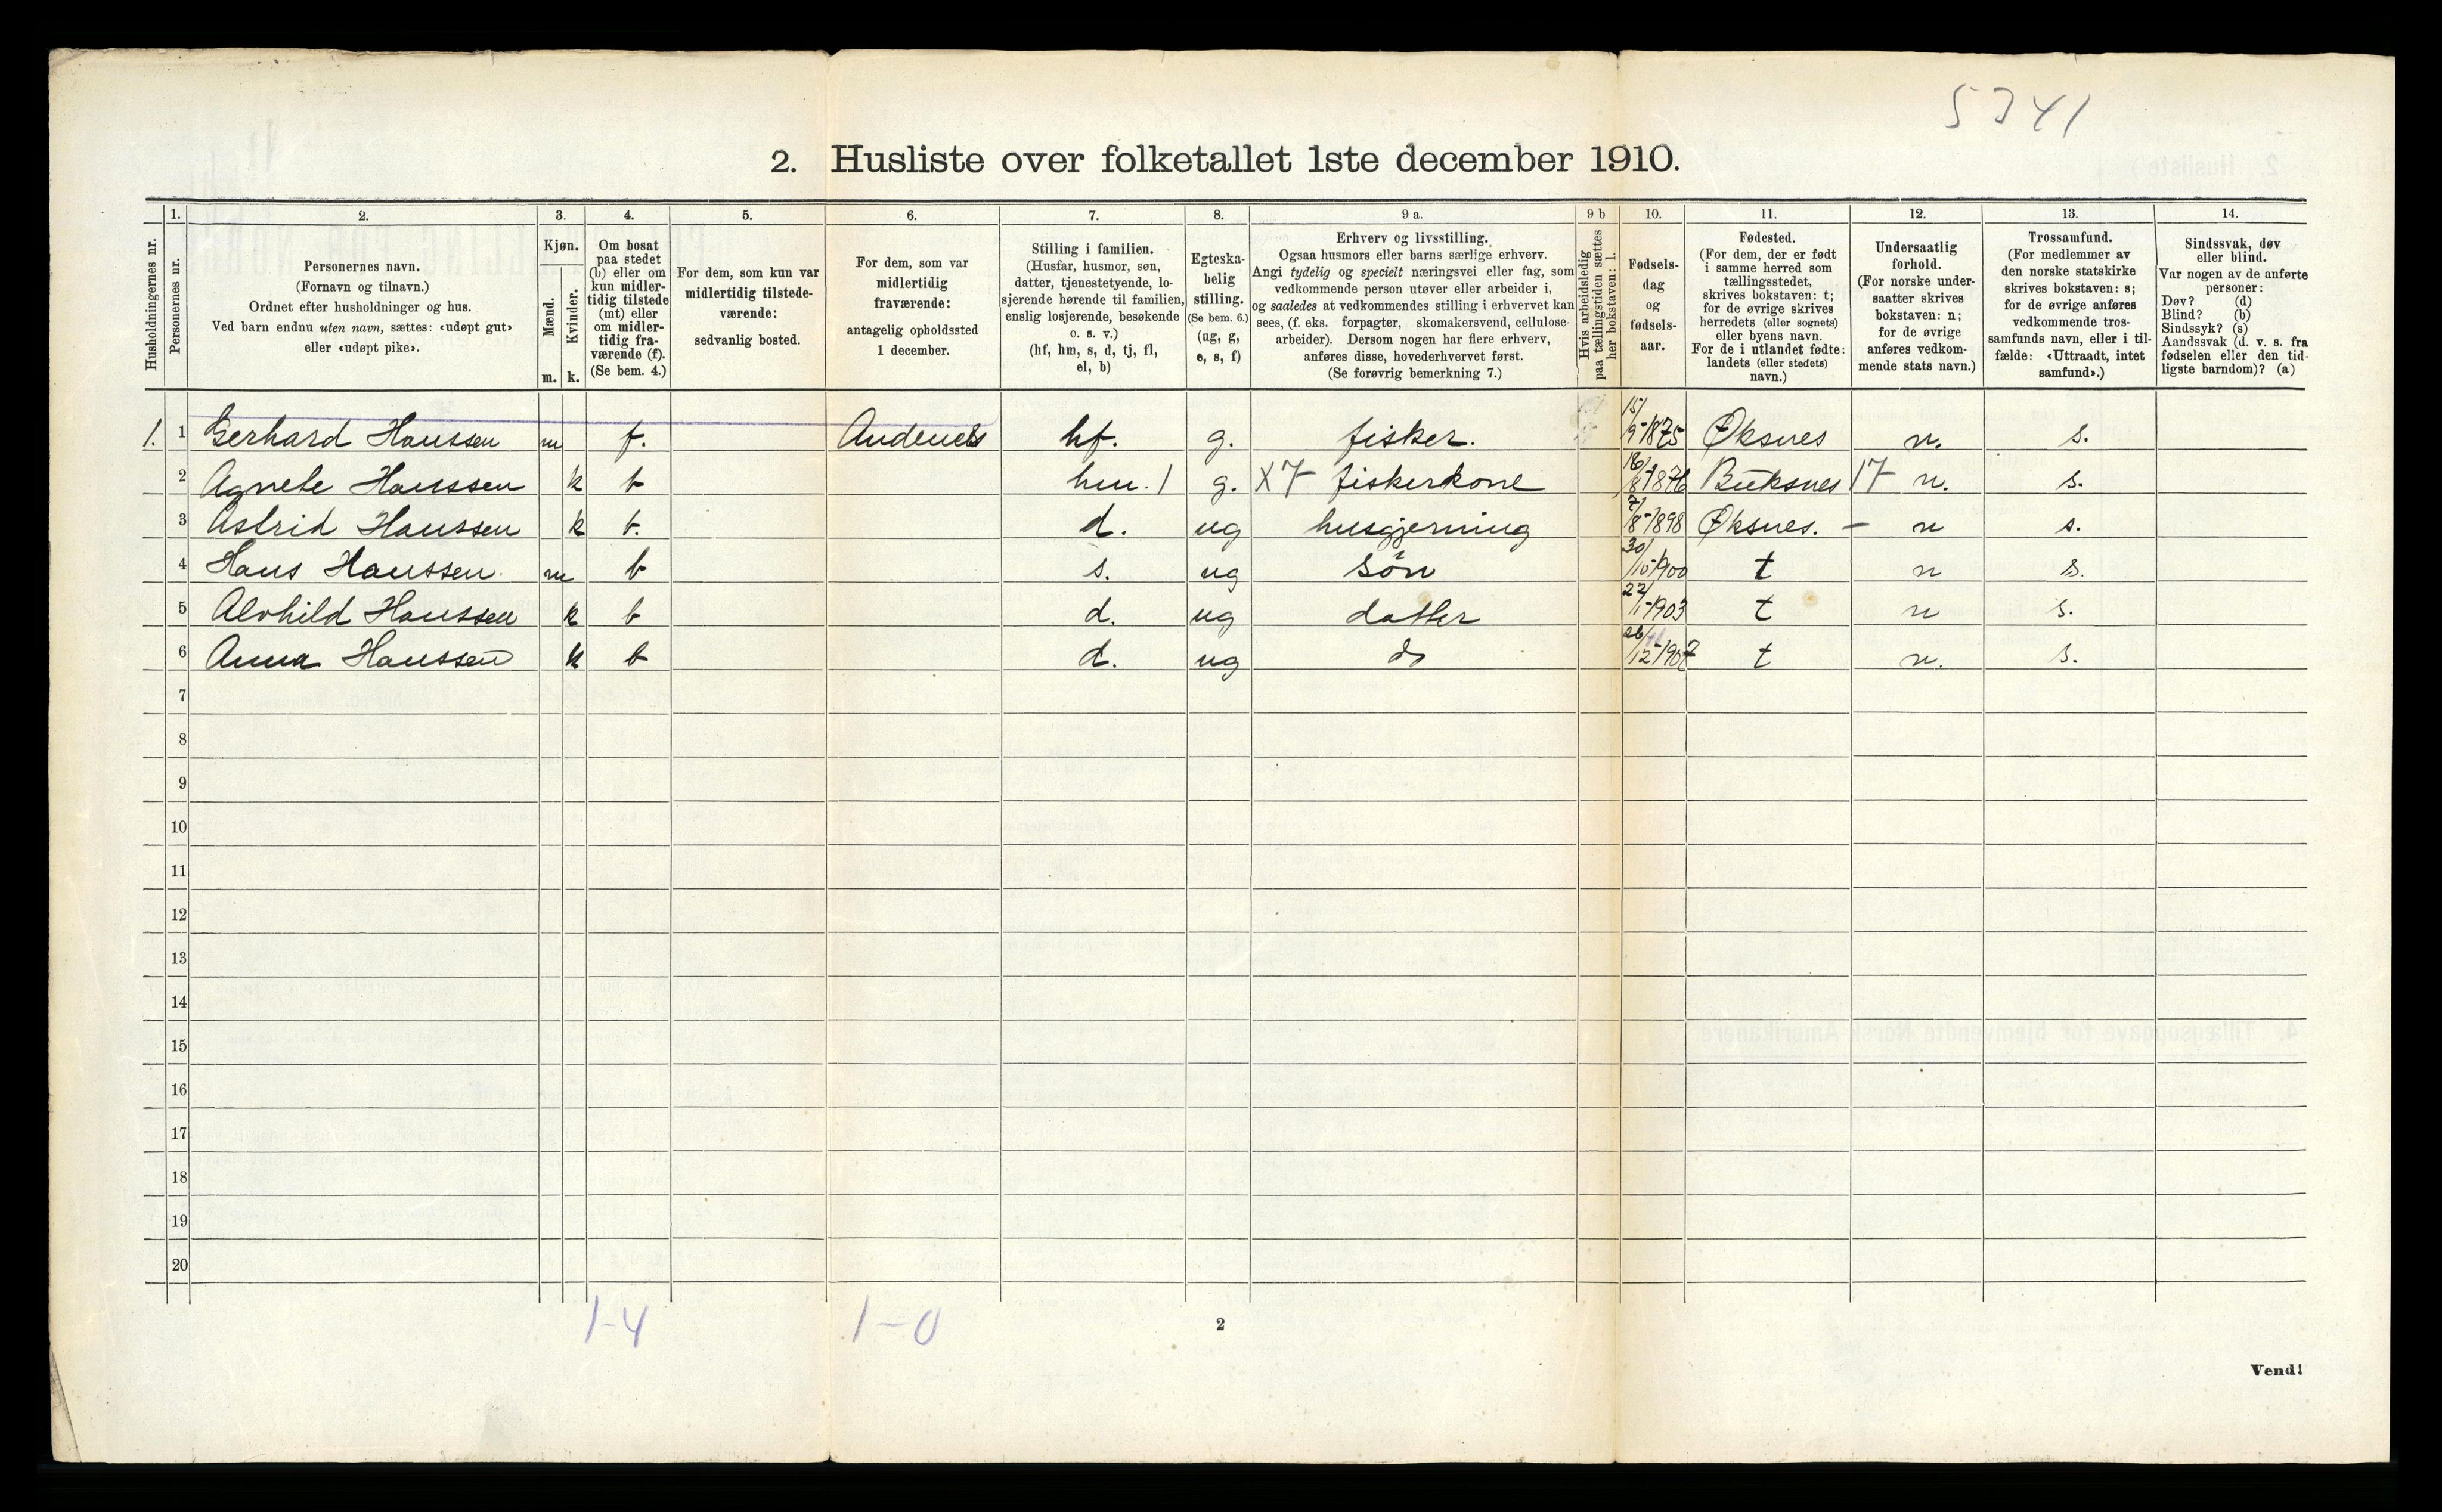 5341
2. Husliste over folketallet 1ste december 1910.
Husholdningernes nr.
1. Personernes nr.
2. Personernes navn.
(Fornavn og tilnavn.)
Ordnet efter husholdninger og hus.
Ved barn endnu uten navn, sættes: «udøpt gut»
eller «udøpt pike».
3. Kjøn.
Mænd. Kvinder.
m. k.
4. Om bosat
paa stedet
(b) eller om
kun midler-
tidig tilstede
(mt) eller
om midler-
tidig fra-
værende (f).
(Se bem. 4.)
5. For dem, som kun var
midlertidig tilstede-
værende:
sedvanlig bosted.
6. For dem, som var
midlertidig
fraværende:
antagelig opholdssted
1 december.
7. Stilling i familien.
(Husfar, husmor, søn,
datter, tjenestetyende, lo-
sjerende hørende til familien,
enslig losjerende, besøkende
o. s. v.)
(hf, hm, s, d, tj, fl,
el, b)
8. Egteska-
belig
stilling.
(Se bem. 6.)
(ug, g,
e, s, f)
9 a. Erhverv og livsstilling.
Ogsaa husmors eller barns særlige erhverv.
Angi tydelig og specielt næringsvei eller fag, som
vedkommende person utøver eller arbeider i,
og saaledes at vedkommendes stilling i erhvervet kan
sees, (f. eks. forpagter, skomakersvend, cellulose-
arbeider). Dersom nogen har flere erhverv,
anføres disse, hovederhvervet først.
(Se forøvrig bemerkning 7.)
9 b Hvis arbeidsledig
paa tællingstiden sættes
her bokstaven: l.
10. Fødsels-
dag
og
fødsels-
aar.
11. Fødested.
(For dem, der er født
i samme herred som
tællingsstedet,
skrives bokstaven: t;
for de øvrige skrives
herredets (eller sognets)
eller byens navn.
For de i utlandet fødte:
landets (eller stedets)
navn.)
12. Undersaatlig
forhold.
(For norske under-
saatter skrives
bokstaven: n;
for de øvrige
anføres vedkom-
mende stats navn.)
13. Trossamfund.
(For medlemmer av
den norske statskirke
skrives bokstaven: s;
for de øvrige anføres
vedkommende tros-
samfunds navn, eller i til-
fælde: «Uttraadt, intet
samfund».)
14. Sindssvak, døv
eller blind.
Var nogen av de anførte
personer:
Døv? (d)
Blind? (b)
Sindssyk? (s)
Aandssvak (d. v. s. fra
fødselen eller den tid-
ligste barndom)? (a)
1. 1 Gerhard Hanssen m f. Andenes hf. g. fisker. 15/9-1875 Øksnes n. s.
2 Agnete Hanssen k b hm. 1 g. X7 fiskerkone 16/8-1876 Buksnes 17 n. s.
3 Astrid Hanssen k b. d. ug husgjerning 7/8-1898 Øksnes. - n s.
4 Hans Hanssen. m b s. ug søn 30/10-1900 t n s.
5 Alvhild Hanssen k b d. ug datter 22/1-1903 t n s.
6 Anna Hanssen k b d. ug do 26/12-1907 t n. s.
7
8
9
10
11
12
13
14
15
16
17
18
19
20
1-4 1-0
2
Vend!